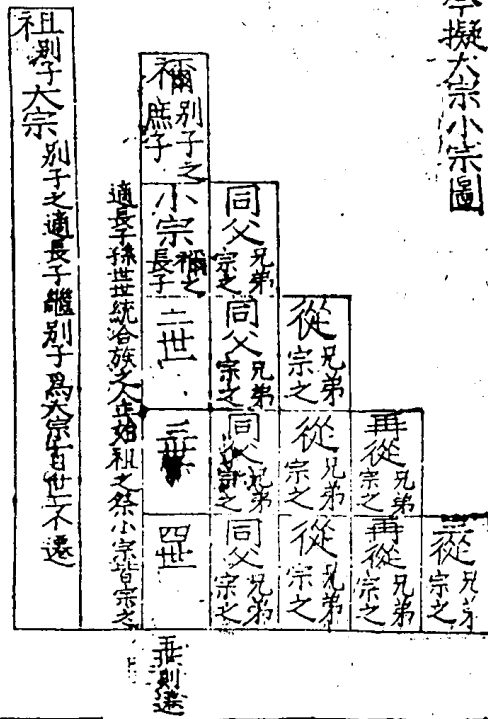 擬大宗小宗圖
三從兄弟宗之
再從兄弟宗之
再從兄弟宗之
從兄弟宗之
從兄弟宗之
從兄弟宗之
同父兄弟宗之
同父兄弟宗之
同父兄弟宗之
同父兄弟宗之
禰別子之庶子
小宗禰之長子
二世
三世
四世
五則遷
適長子孫世世統合族之人主始祖之祭小宗皆宗之
祖別子
大宗別子之適長子繼別子爲大宗百世不遷